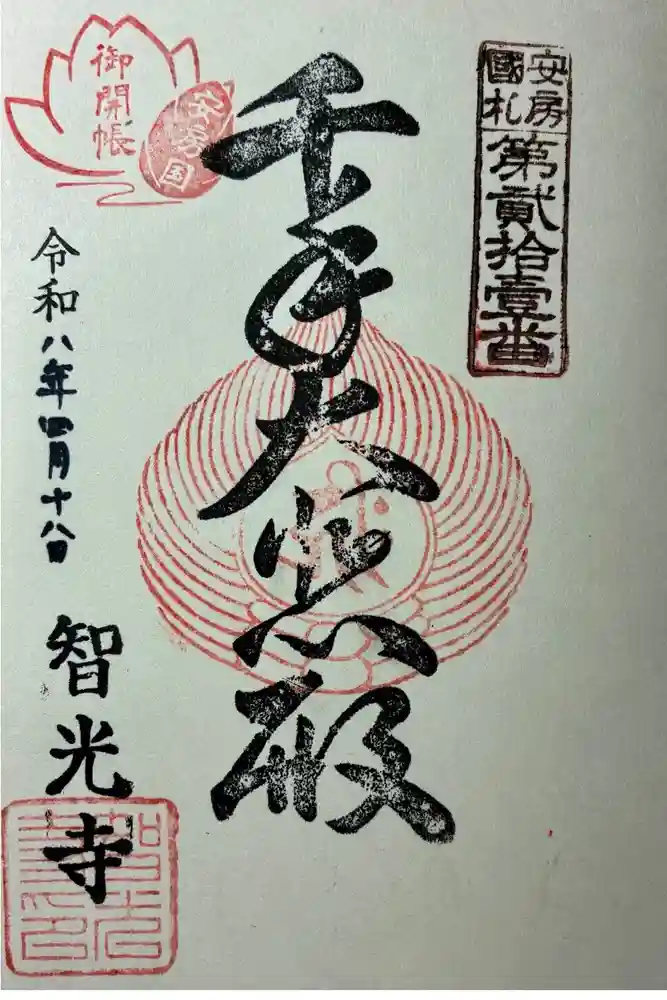 安房
國札
第貳拾壹番
千手大悲殿
御開帳
安房国
令和八年四月十八日
智光寺